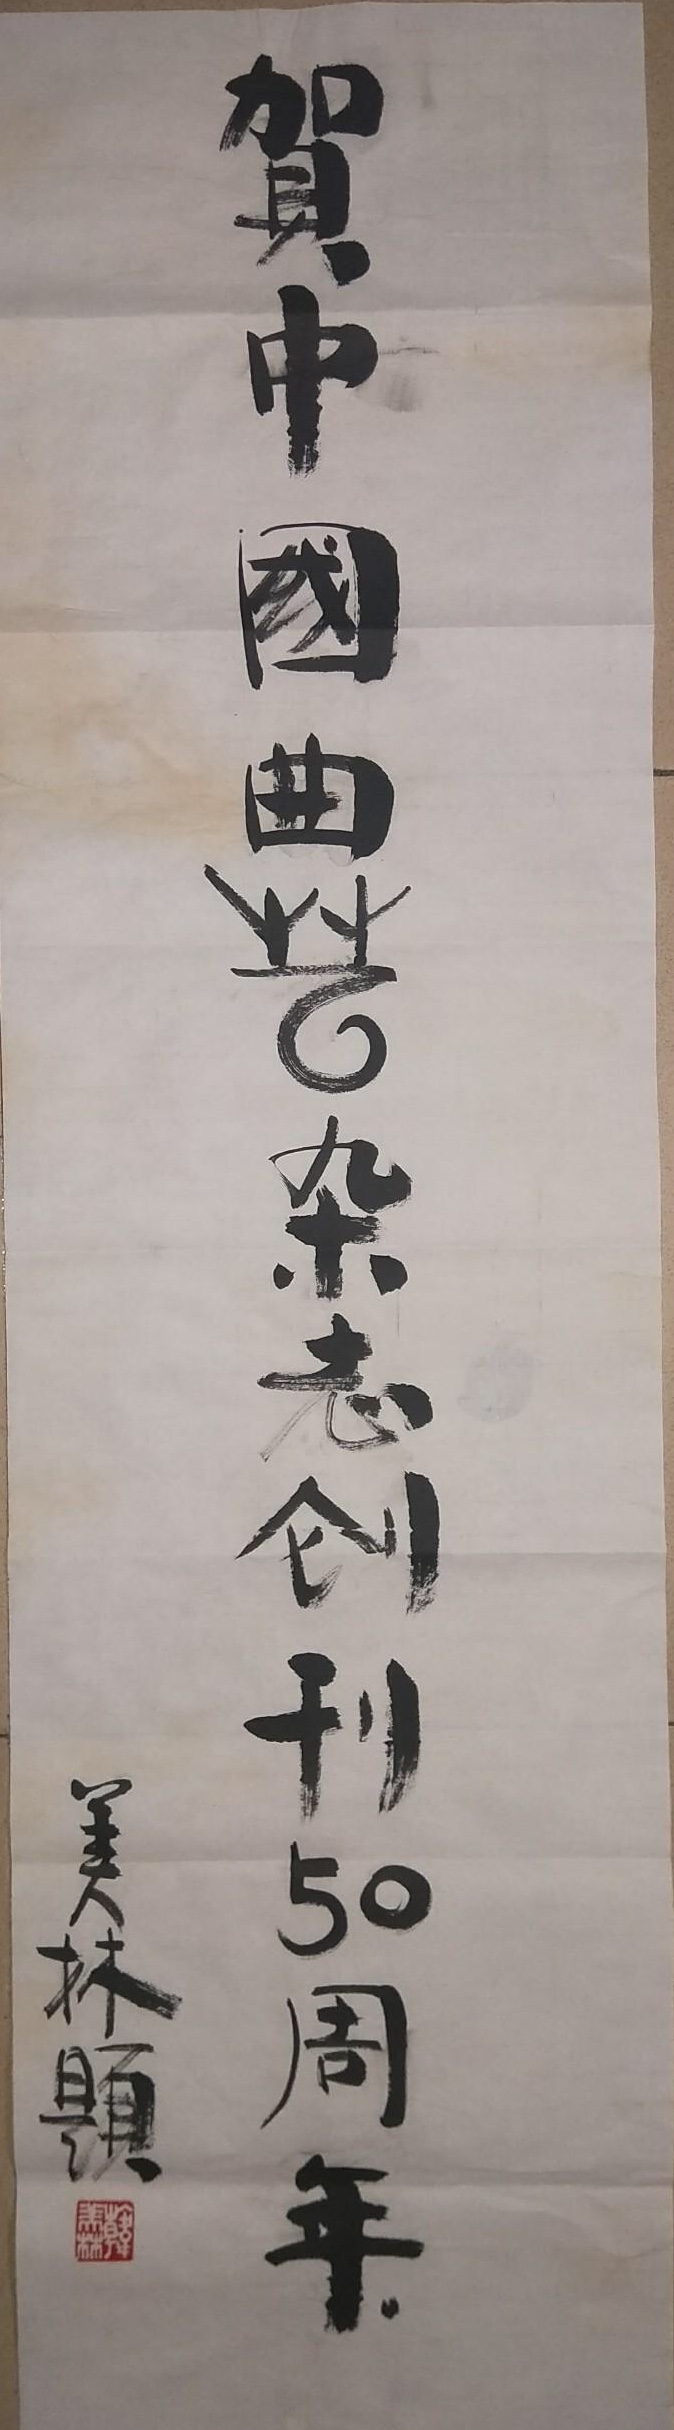 賀中國曲艺杂志创刊50周年.
美林題
韓美林